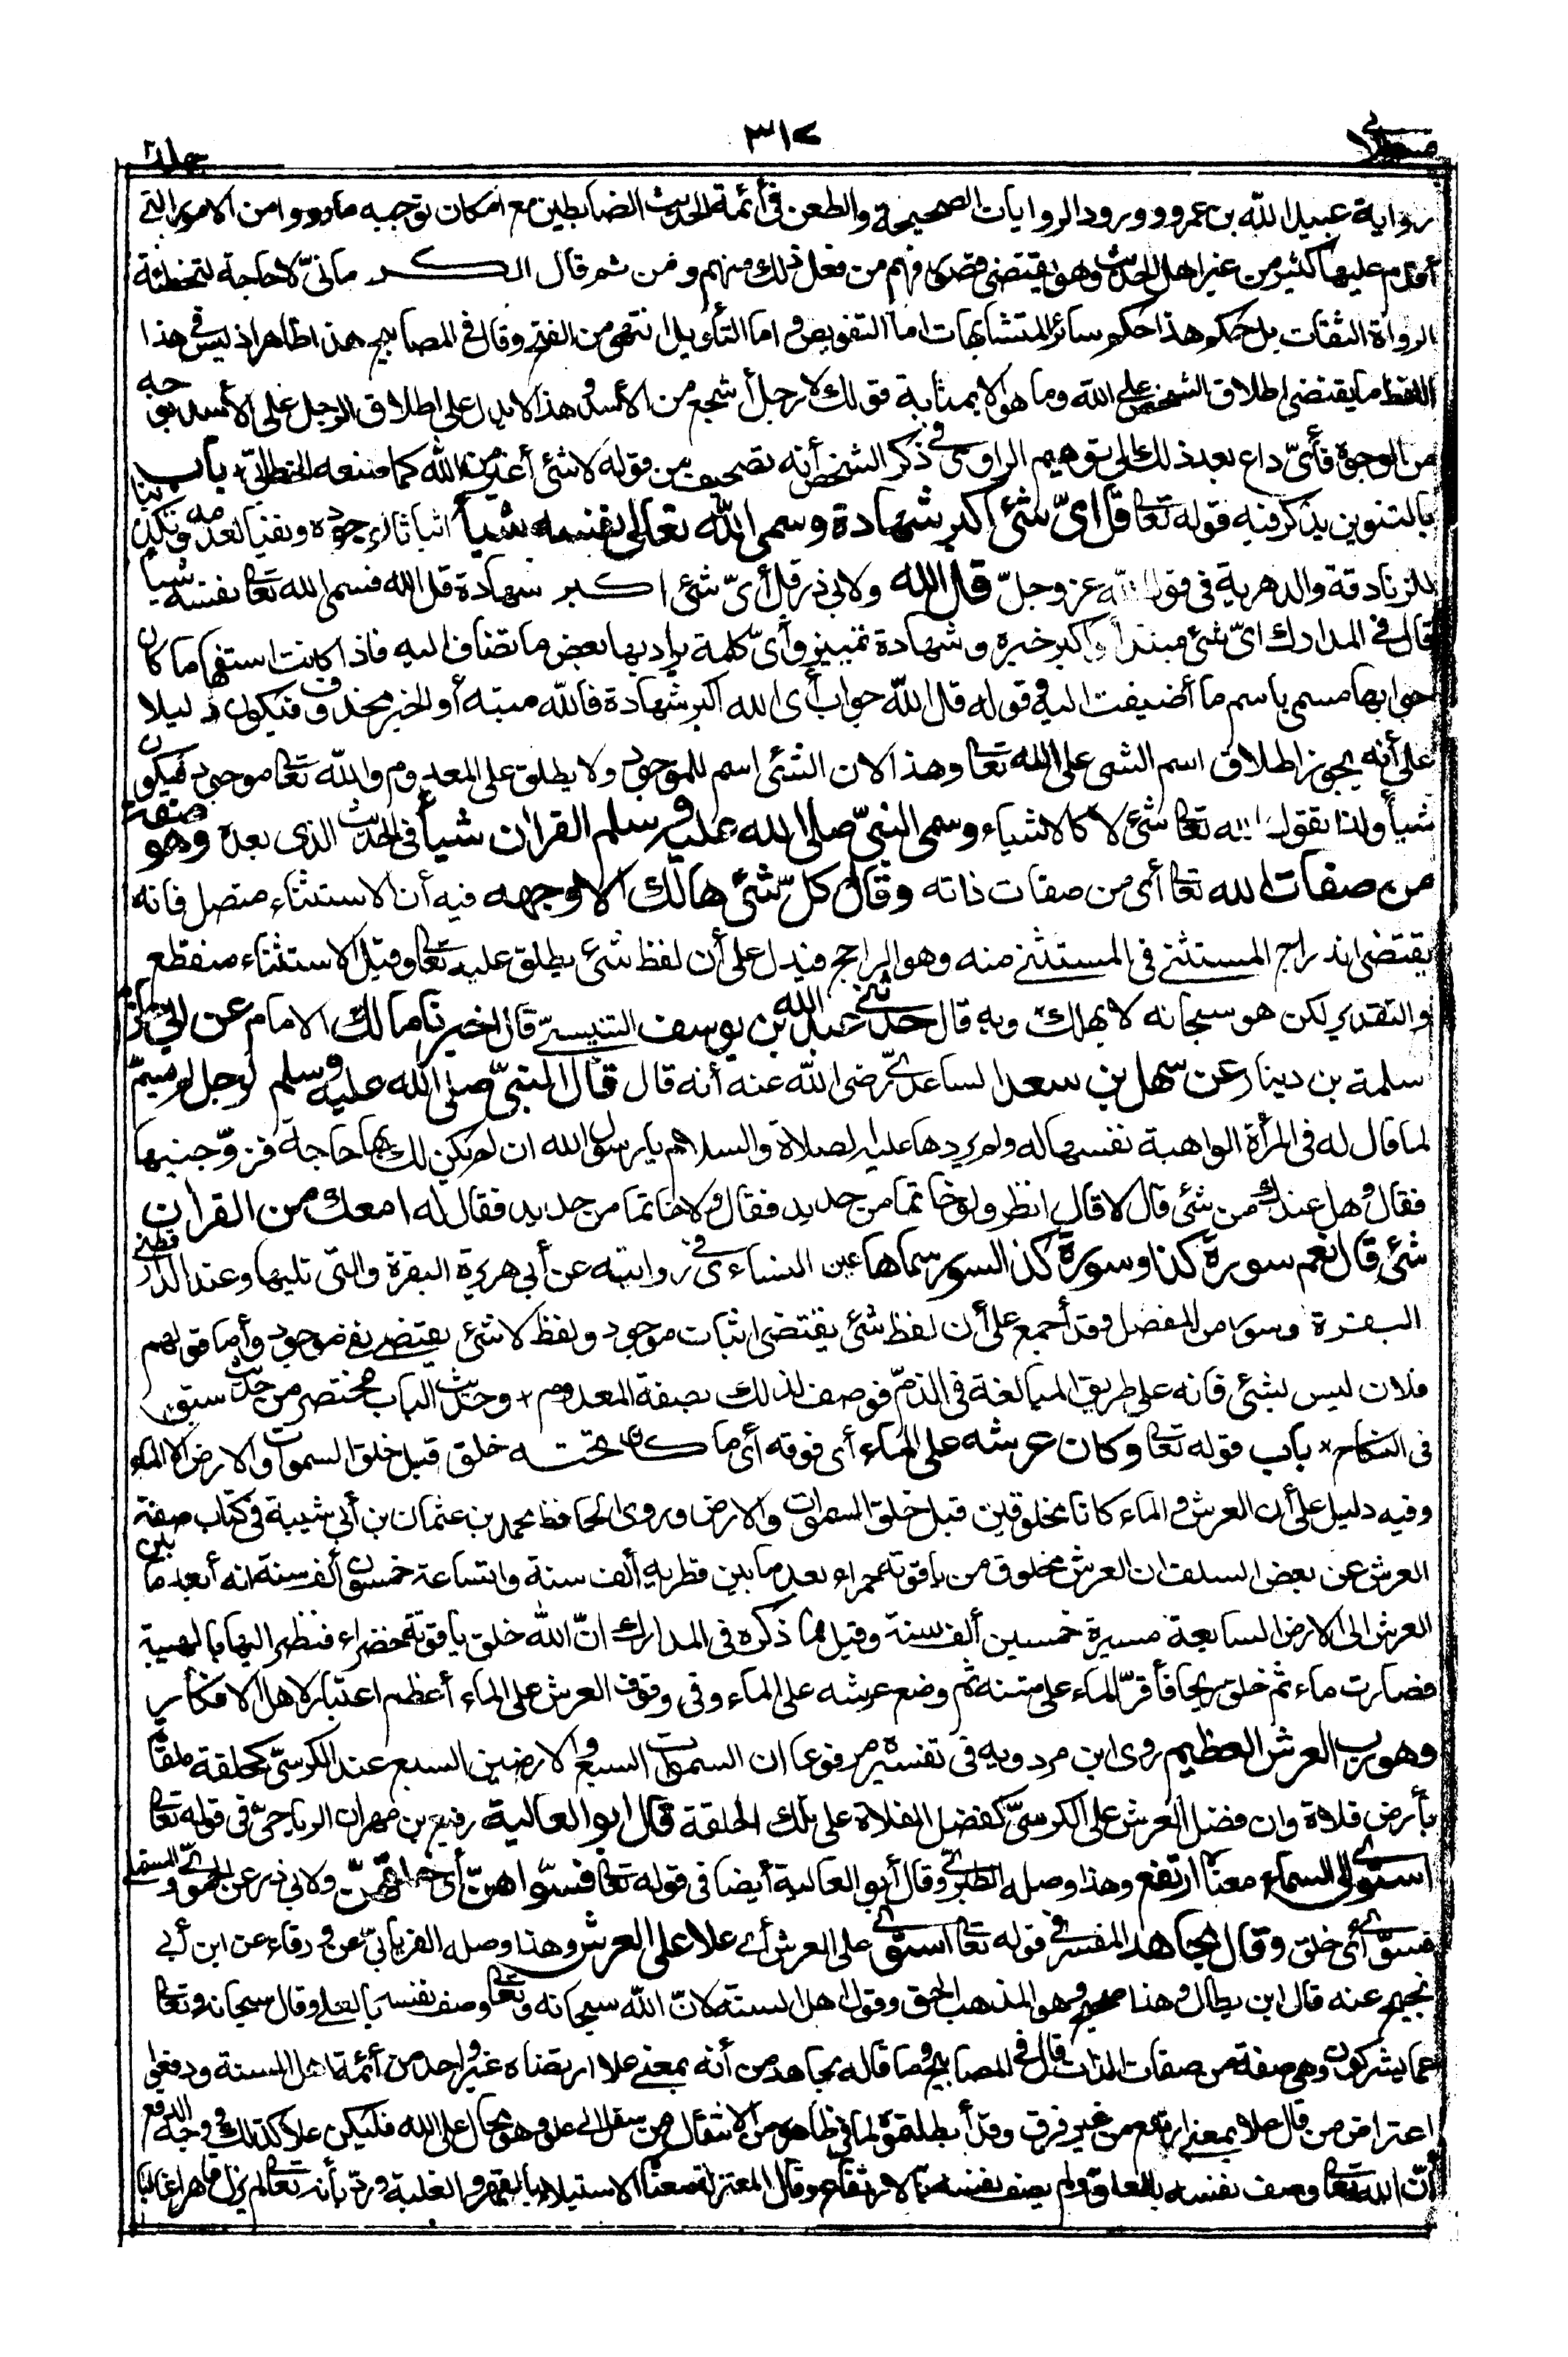 قسطلانى ٣١٧ جلد
رواية عبيد الله بن عمرو وورود الروايات الصحيحة والطعن فى أئمة الحديث الضابطين مع امكان توجيه ما رووا من الامور التى
أقدم عليها كثير من غير اهل الحديث وهو يقتضى قصور فهم من فعل ذلك منهم ومن ثم قال الكرمانىّ لا حاجة لتخطئة
الرواة الثقات بل حكم هذا حكم سائر المتشابهات اما التفويض واما التأويل انتهى من الفتح وقال فى المصابيح هذا ظاهر اذ ليس فى هذا
اللفظ ما يقتضى اطلاق الشخص على الله وما هو الا بمثابة قولك لا رجل أشجع من الأسد وهذا لا يدل على اطلاق الرجل على الأسد بوجه
من الوجوه فأىّ داع بعد ذلك الى توهيم الراوى فى ذكر الشخص أنه تصحيف من قوله لا شئ أغير من الله كما صنعه الخطابىّ باب
بالتنوين يذكر فيه قوله تعا قل اىّ شئ اكبر شهادة وسمى الله تعالى نفسه شيأ اثباتا لوجوده ونفيا لعدمه وتكذيبا
للزنادقة والدهرية فى قول الله عز وجلّ قل الله ولابى ذر قل أىّ شئ اكبر شهادة قل الله فسمى الله تعا نفسه شيأ
قال فى المدارك اىّ شئ مبتدأ واكبر خبره وشهادة تمييز وأىّ كلمة يراد بها بعض ما تضاف اليه فاذا كانت استفهاما كان
جوابها مسمى باسم ما أضيفت اليه وقوله قل الله جواب أى الله اكبر شهادة فالله مبتدأ والخبر محذوف فيكون دليلا
على أنه يجوز اطلاق اسم الشئ على الله تعا وهذا لان الشئ اسم للموجود ولا يطلق على المعدوم والله تعا موجود فيكون
شيأ ولذا نقول الله تعا شئ لا كالاشياء وسمى النبىّ صلى الله عليه وسلم القرآن شيأ فى الحديث الذى بعد وهو صفة
من صفات الله تعا أى من صفات ذاته وقال كلّ شئ هالك الا وجهه فيه أن الاستثناء متصل فانه
يقتضى اندراج المستثنى فى المستثنى منه وهو الراجح فيدل على أن لفظ شئ يطلق عليه تعا وقيل الاستثناء منقطع
والتقدير لكن هو سبحانه لا يهلك وبه قال حدثنى عبد الله بن يوسف التنيسىّ قال اخبرنا مالك الامام عن ابى حازم
سلمة بن دينار عن سهل بن سعد الساعدىّ رضى الله عنه أنه قال قال النبىّ صلى الله عليه وسلم لرجل لم يسمّ
لما قال له فى المرأة الواهبة نفسها له ولم يردها عليه الصلاة والسلام يا رسول الله ان لم يكن لك بها حاجة فزوّجنيها
فقال وهل عندك من شئ قال لا قال انظر ولو خاتما من حديد فقال ولا خاتما من حديد فقال له امعك من القرآن
شئ قال نعم سورة كذا وسورة كذا لسور سماها عين النساءى فى روايته عن أبى هريرة البقرة والتى تليها وعند الدارقطنى
البقرة وسور من المفصل وقد أجمع على أن لفظ شئ يقتضى اثبات موجود ولفظ لا شئ يقتضى نفى موجود وأما قولهم
فلان ليس بشئ فانه على طريق المبالغة فى الذمّ فوصف لذلك بصفة المعدوم وحديث الباب مختصر من حديث سبق
فى النكاح باب قوله تعا وكان عرشه على الماء أى فوقه أى ما كان تحته خلق قبل خلق السموات والارض الا الماء
وفيه دليل على أن العرش والماء كانا مخلوقين قبل خلق السموات والارض وروى الحافظ محمد بن عثمان بن أبى شيبة فى كتاب صفة
العرش عن بعض السلف ان العرش مخلوق من ياقوتة حمراء بعد ما بين قطريه ألف سنة واتساعه خمسون ألف سنة انه أبعد ما بين
العرش الى الارض السابعة مسيرة خمسين ألف سنة وقيل مما ذكره فى المدارك انّ الله خلق ياقوتة خضراء فنظر اليها بالهيبة
فصارت ماء ثم خلق ريحا فأقرّ الماء على متنه ثم وضع عرشه على الماء وفى وقوف العرش على الماء أعظم اعتبار لاهل الافكار
وهو رب العرش العظيم روى ابن مردويه فى تفسيره مرفوعا ان السموات السبع والارضين السبع عند الكرسىّ كحلقة ملقاة
بأرض فلاة وان فضل العرش على الكرسىّ كفضل الفلاة على تلك الحلقة قال ابو العالية رفيع بن مهران الرياحىّ فى قوله تعا
استوى الى السماء معناه ارتفع وهذا وصله الطبرىّ وقال أبو العالية أيضا فى قوله تعا فسوّاهنّ أى خلقهنّ ولابى ذر عن الحموىّ والمستملى
فسوّى أى خلق وقال مجاهد المفسر فى قوله تعا استوى على العرش أى علا على العرش وهذا وصله الفريابىّ عن ورقاء عن ابن أبى
نجيح عنه قال ابن بطال وهذا صحيح وهو المذهب الحق وقول اهل السنة لانّ الله سبحانه وتعا وصف نفسه بالعلو وقال سبحانه وتعا
عما يشركون وهى صفة من صفات الذات قال فى المصابيح وما قاله مجاهد من أنه بمعنى علا ارتضاه غير واحد من أئمة اهل السنة ودفعوا
اعتراض من قال علا بمعنى ارتفع من غير فرق وقد أبطلتموه لما فى ظاهره من الانتقال من سفل الى علو وهو محال على الله فليكن علا كذلك ووجه الدفع
أنّ الله تعا وصف نفسه بالعلو ولم يصف نفسه بالارتفاع وقال المعتزلة معناه الاستيلاء بالقهر والغلبة وردّ بأنه تعا لم يزل قاهرا غالبا